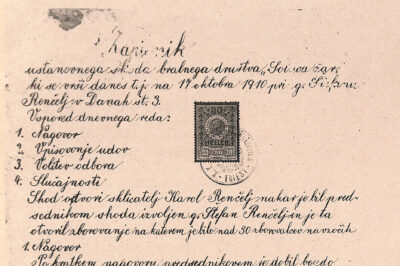 Zapisnik
ustanovnega shoda bralnega društva „
ki se vrši danes t.j. na 17 oktobra 1910 pri g.
Renčelj v Danah št. 3.
Vspored dnevnega reda:
1. Nagovor
2. Vpisovanje udov
3. Volitev odbora
4. Slučajnosti
Shod otvori sklicatelj Karol Renčelj nakar je bil pred-
sednikom shoda izvoljen g. Stefan Renčelj in je ta
otvoril zborovanje na katerem je bilo nad 30 zborovalcev navzočih
1. Nagovor
Po kratkem nagovoru predsednikovem je dobil besedo